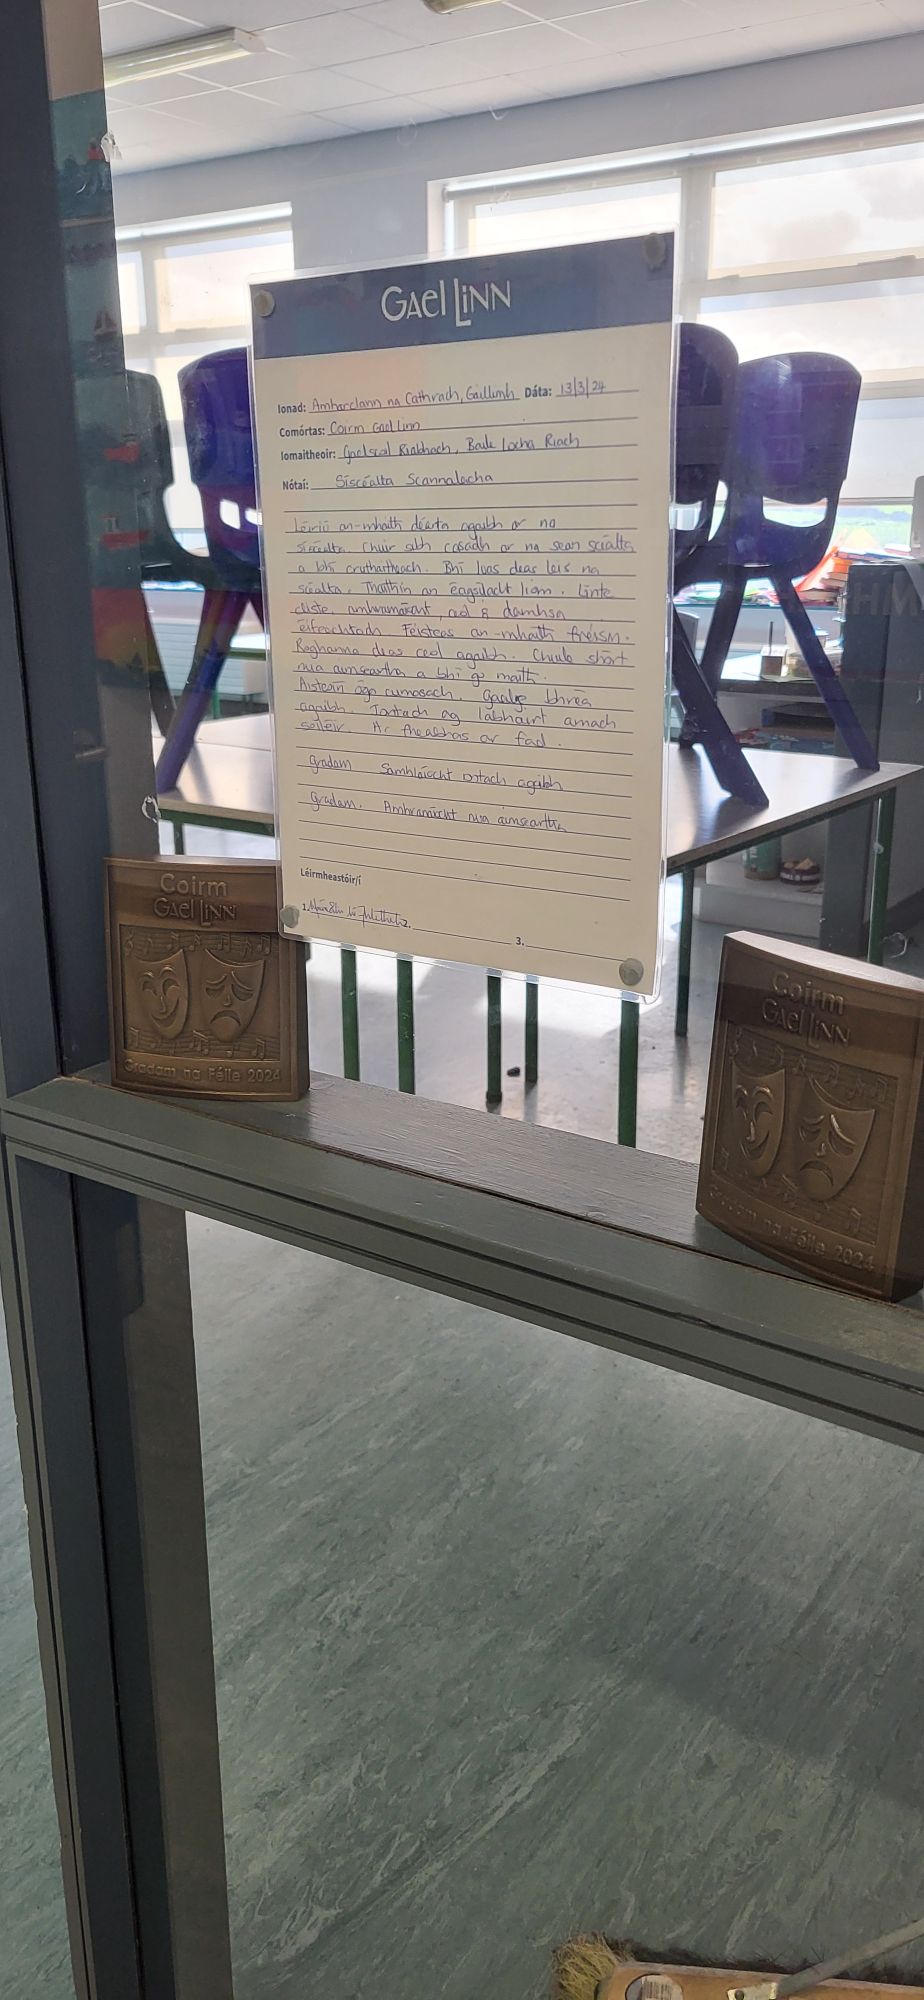 GAEL LINN
Ionad: Amharclann na Cathrach, Gaillimh Dáta: 13/3/24
Comórtas: Coirm Gael Linn
Iomaitheoir: Gaelscoil Riabhach, Baile Locha Riach
Nótaí: Síscéalta Scannalacha
Léiriú an-mhaith déanta agaibh ar na
síscéalta. Chuir sibh casadh ar na sean scéalta
a bhí cruthaitheach. Bhí luas deas leis na
scéalta. Thaithin an éagsúlacht liom. Línte
cliste, amhránaíocht, ceol & damhsa
éifeachtach. Feisteas an-mhaith freisin.
Roghanna deas ceol agaibh. Chuala
nua aimseartha a bhí go maith.
Aisteoirí óga cumasach. Gaeilge bhreá
agaibh. Iontach ag labhairt amach
soiléir. Ar fheabhas ar fad.
Gradam Samhlaíocht iontach agaibh
Gradam. Amhránaíocht nua aimseartha
Léirmheastóir/í
1. 2. 3.
Coirm
GAEL LINN
Gradam na Féile 2024
Coirm
GAEL LINN
Gradam na Féile 2024